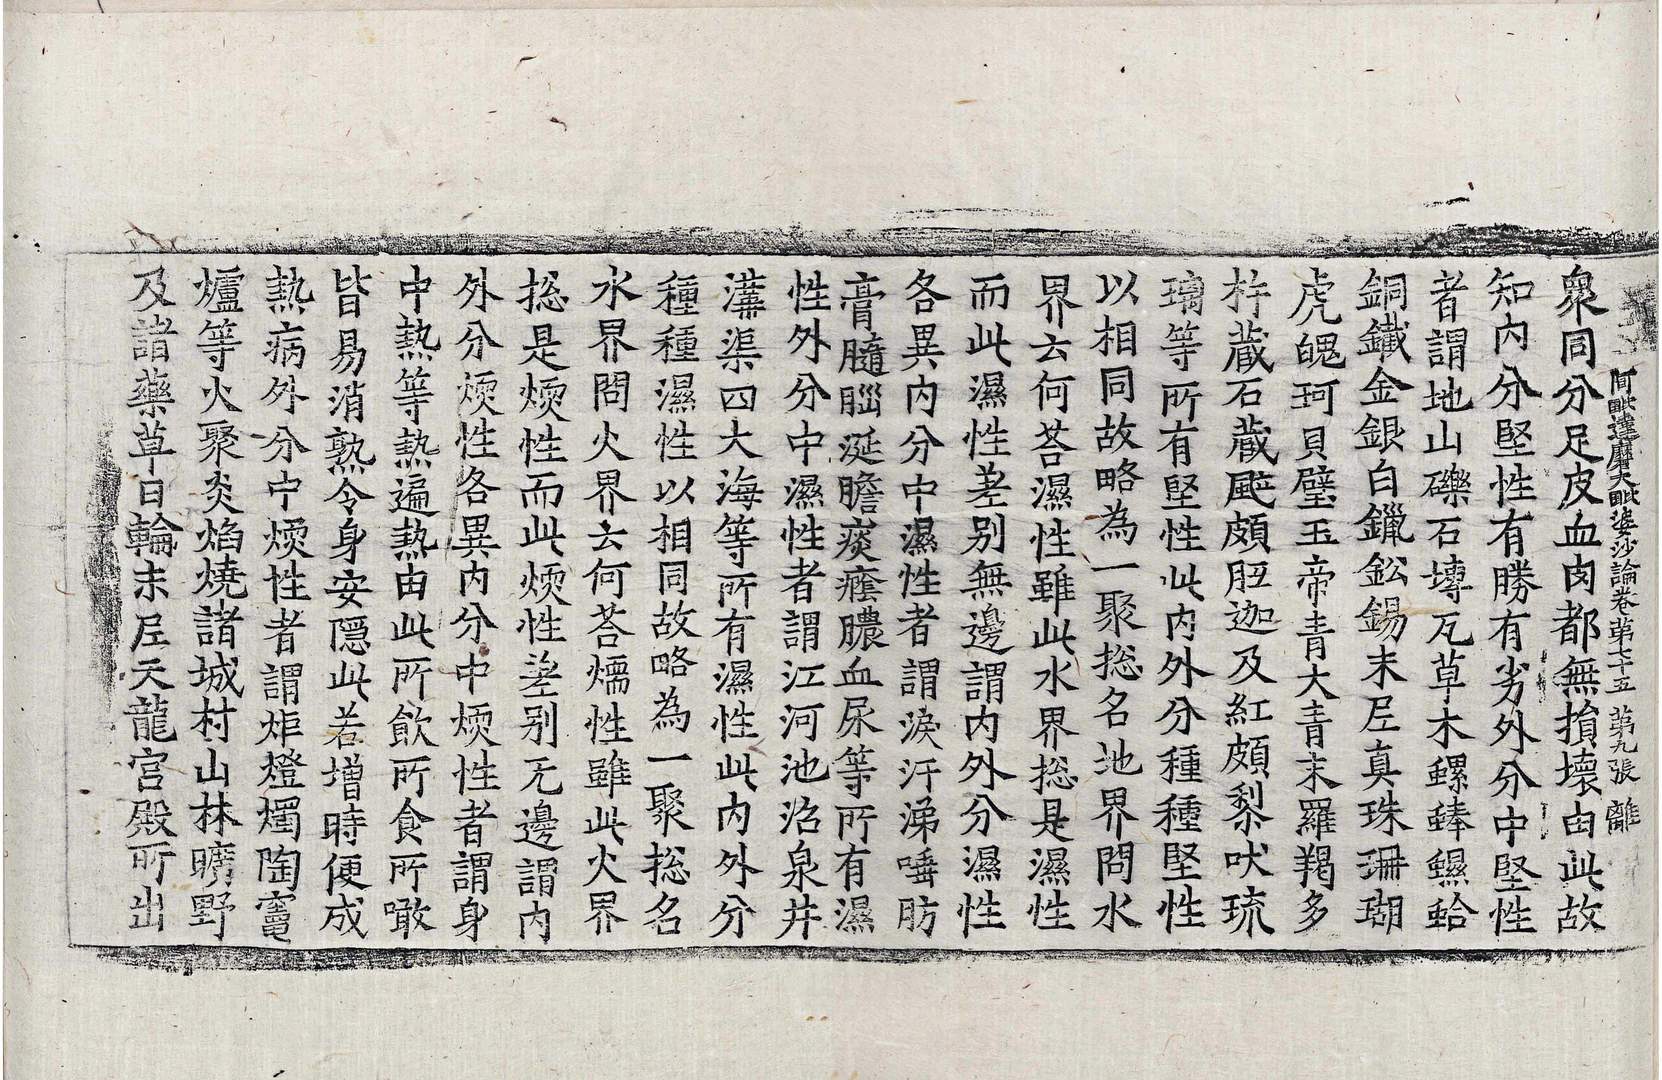 阿毗達磨大毗婆沙論卷第七十五 第九張 離
衆同分足皮血肉都無損壞由此故
知內分堅性有勝有劣外分中堅性
者謂地山礫石塼瓦草木螺蜯蠣蛤
銅鐵金銀白鑞鈆錫末尼真珠珊瑚
虎魄珂貝璧玉帝青大青末羅羯多
杵藏石藏颷頗胝迦及紅頗梨吠琉
璃等所有堅性此內外分種種堅性
以相同故略為一聚揔名地界問水
界云何荅濕性雖此水界揔是濕性
而此濕性差别無邊謂內外分濕性
各異內分中濕性者謂淚汗涕唾肪
膏髓𦛁涎膽痰癊膿血尿等所有濕
性外分中濕性者謂江河池沼泉井
溝渠四大海等所有濕性此內外分
種種濕性以相同故略為一聚揔名
水界問火界云何荅煗性雖此火界
揔是煗性而此煗性差别无邊謂內
外分煗性各異內分中煗性者謂身
中熱等熱遍熱由此所飲所食所噉
皆易消熟令身安隱此若增時便成
熱病外分中煗性者謂炬燈燭陶竈
爐等火聚炎焰燒諸城村山林曠野
及諸藥草日輪末尼天龍宫殿所出